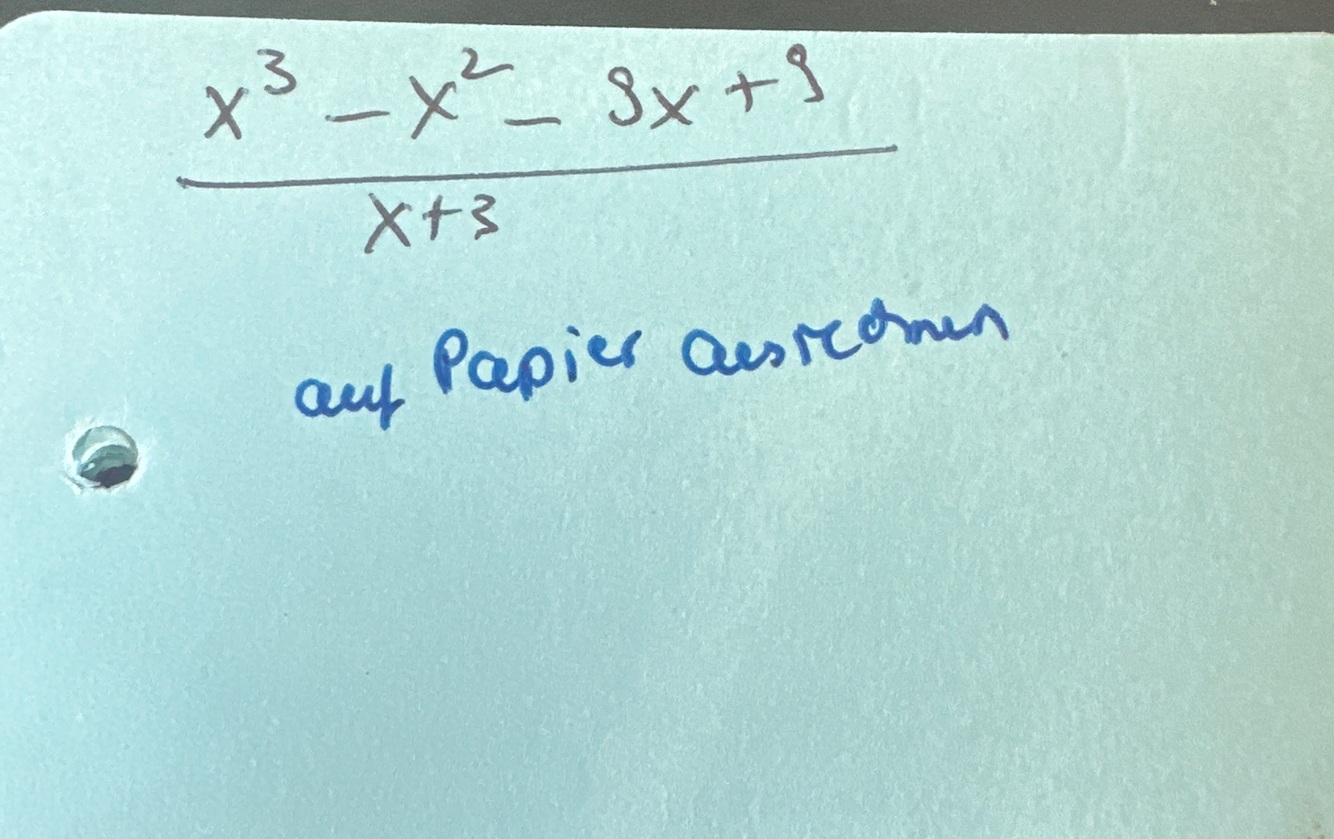 x³ - x² - 9x + 9
x+3
auf Papier ausrechnen